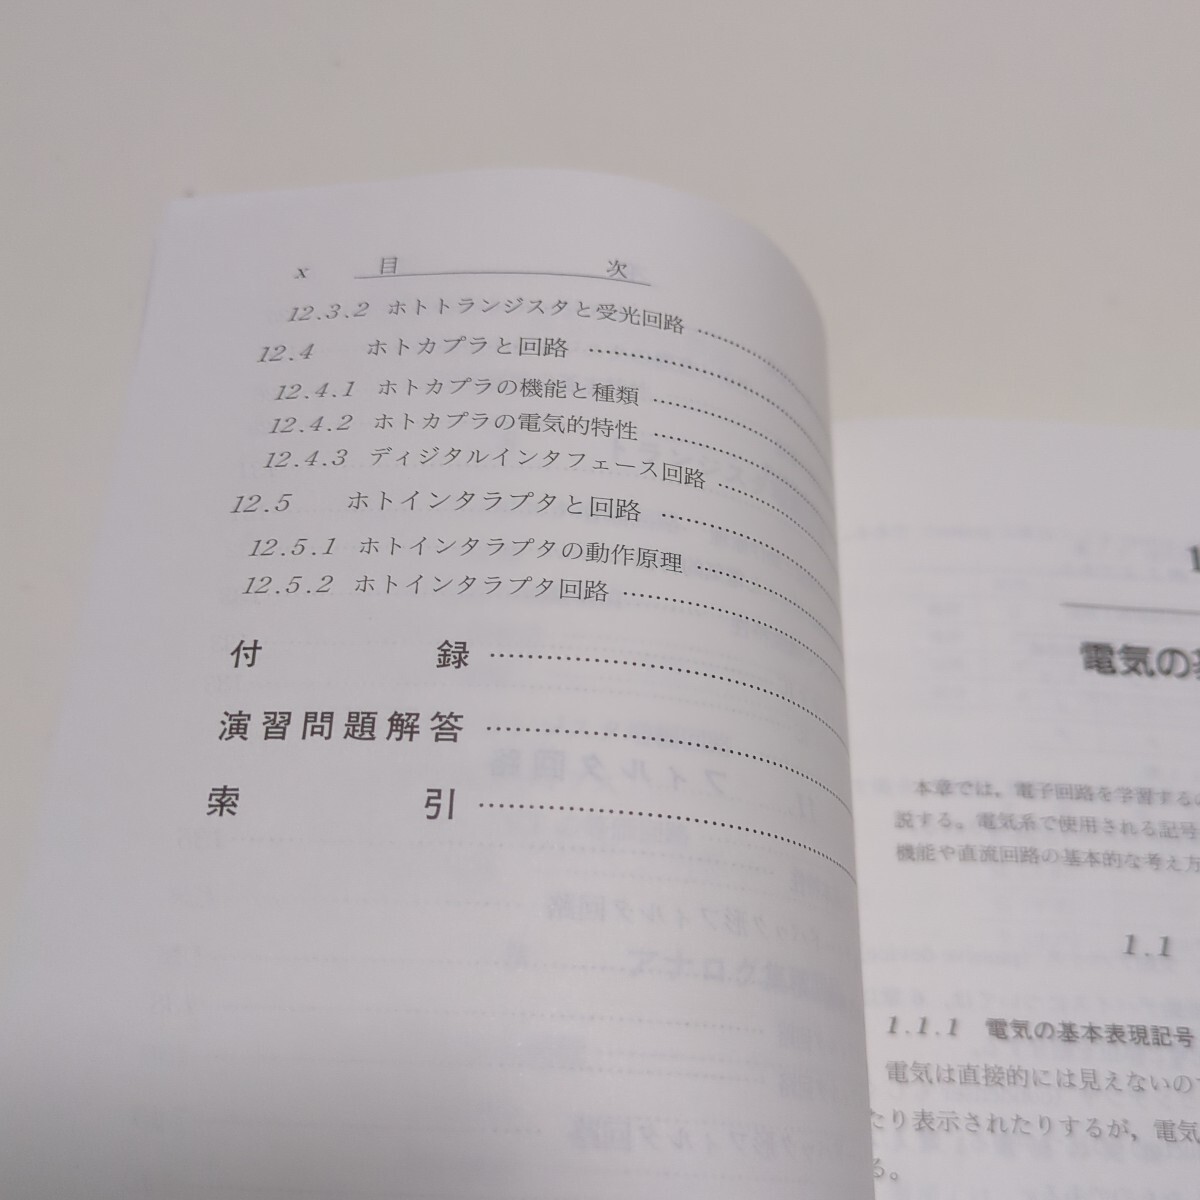 x 目 次
12.3.2 ホトトランジスタと受光回路
12.4 ホトカプラと回路
12.4.1 ホトカプラの機能と種類
12.4.2 ホトカプラの電気的特性
12.4.3 ディジタルインタフェース回路
12.5 ホトインタラプタと回路
12.5.1 ホトインタラプタの動作原理
12.5.2 ホトインタラプタ回路
付 録
演習問題解答
索 引
1
電気の
本章では，電子回路を学習するの
説する。電気系で使用される記号
機能や直流回路の基本的な考え方
1.1
1.1.1 電気の基本表現記号
電気は直接的には見えないので
たり表示されたりするが，電気
る。